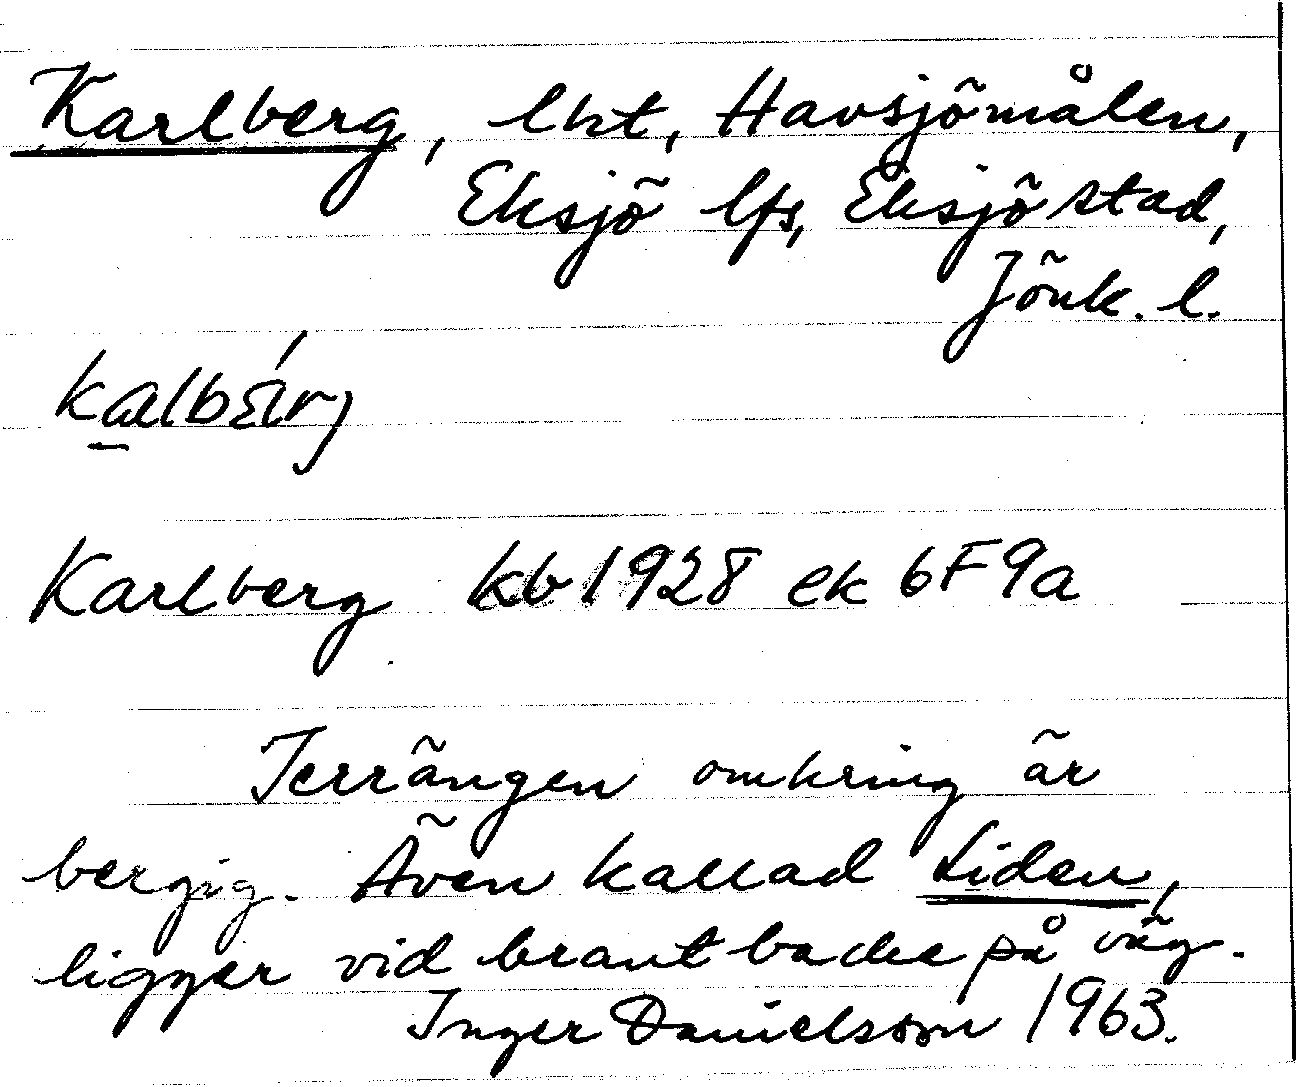 Karlberg, lht, Havsjömålen,
Eksjö lfs, Eksjö stad,
Jönk. l.
Karlberg kb 1928 ek 6F9a
Terrängen omkring är
bergig. Även kallad Liden,
ligger vid brant backe på väg.
Inger Danielsson 1963.